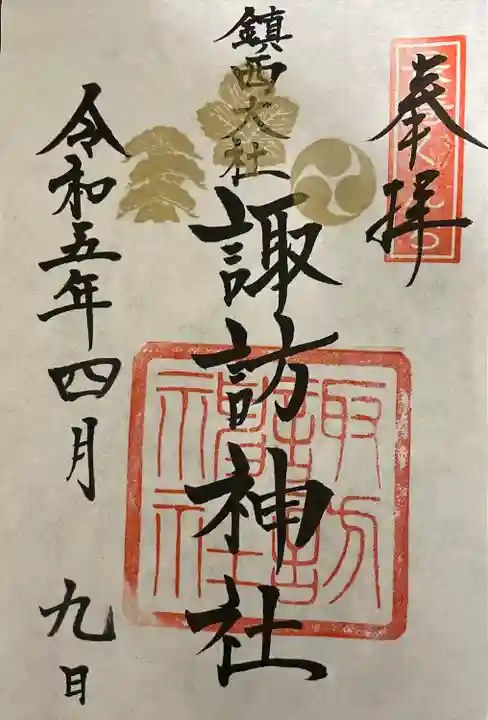 奉拝
鎮西大社
諏訪神社
令和五年四月九日